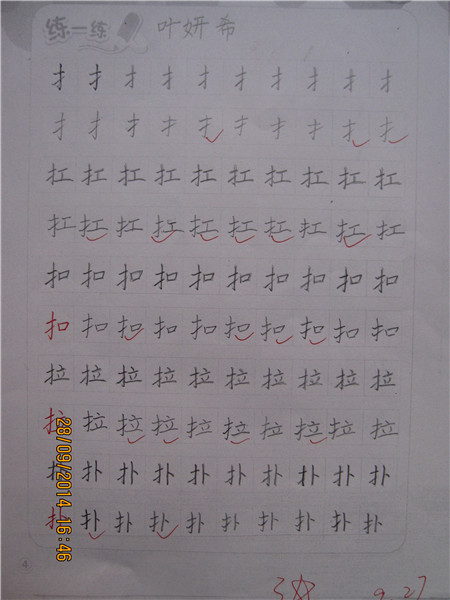 练一练 叶妍希
扌 扌 扌 扌 扌 扌 扌 扌 扌 扌
扌 扌 扌 扌 扌 扌 扌 扌 扌 扌
扛 扛 扛 扛 扛 扛 扛 扛 扛 扛
扛 扛 扛 扛 扛 扛 扛 扛 扛 扛
扣 扣 扣 扣 扣 扣 扣 扣 扣 扣
扣 扣 扣 扣 扣 扣 扣 扣 扣 扣
拉 拉 拉 拉 拉 拉 拉 拉 拉 拉
拉 拉 拉 拉 拉 拉 拉 拉 拉 拉
扑 扑 扑 扑 扑 扑 扑 扑 扑 扑
扑 扑 扑 扑 扑 扑 扑 扑 扑 扑
28/09/2014 16:46
4
3☆ 9.27